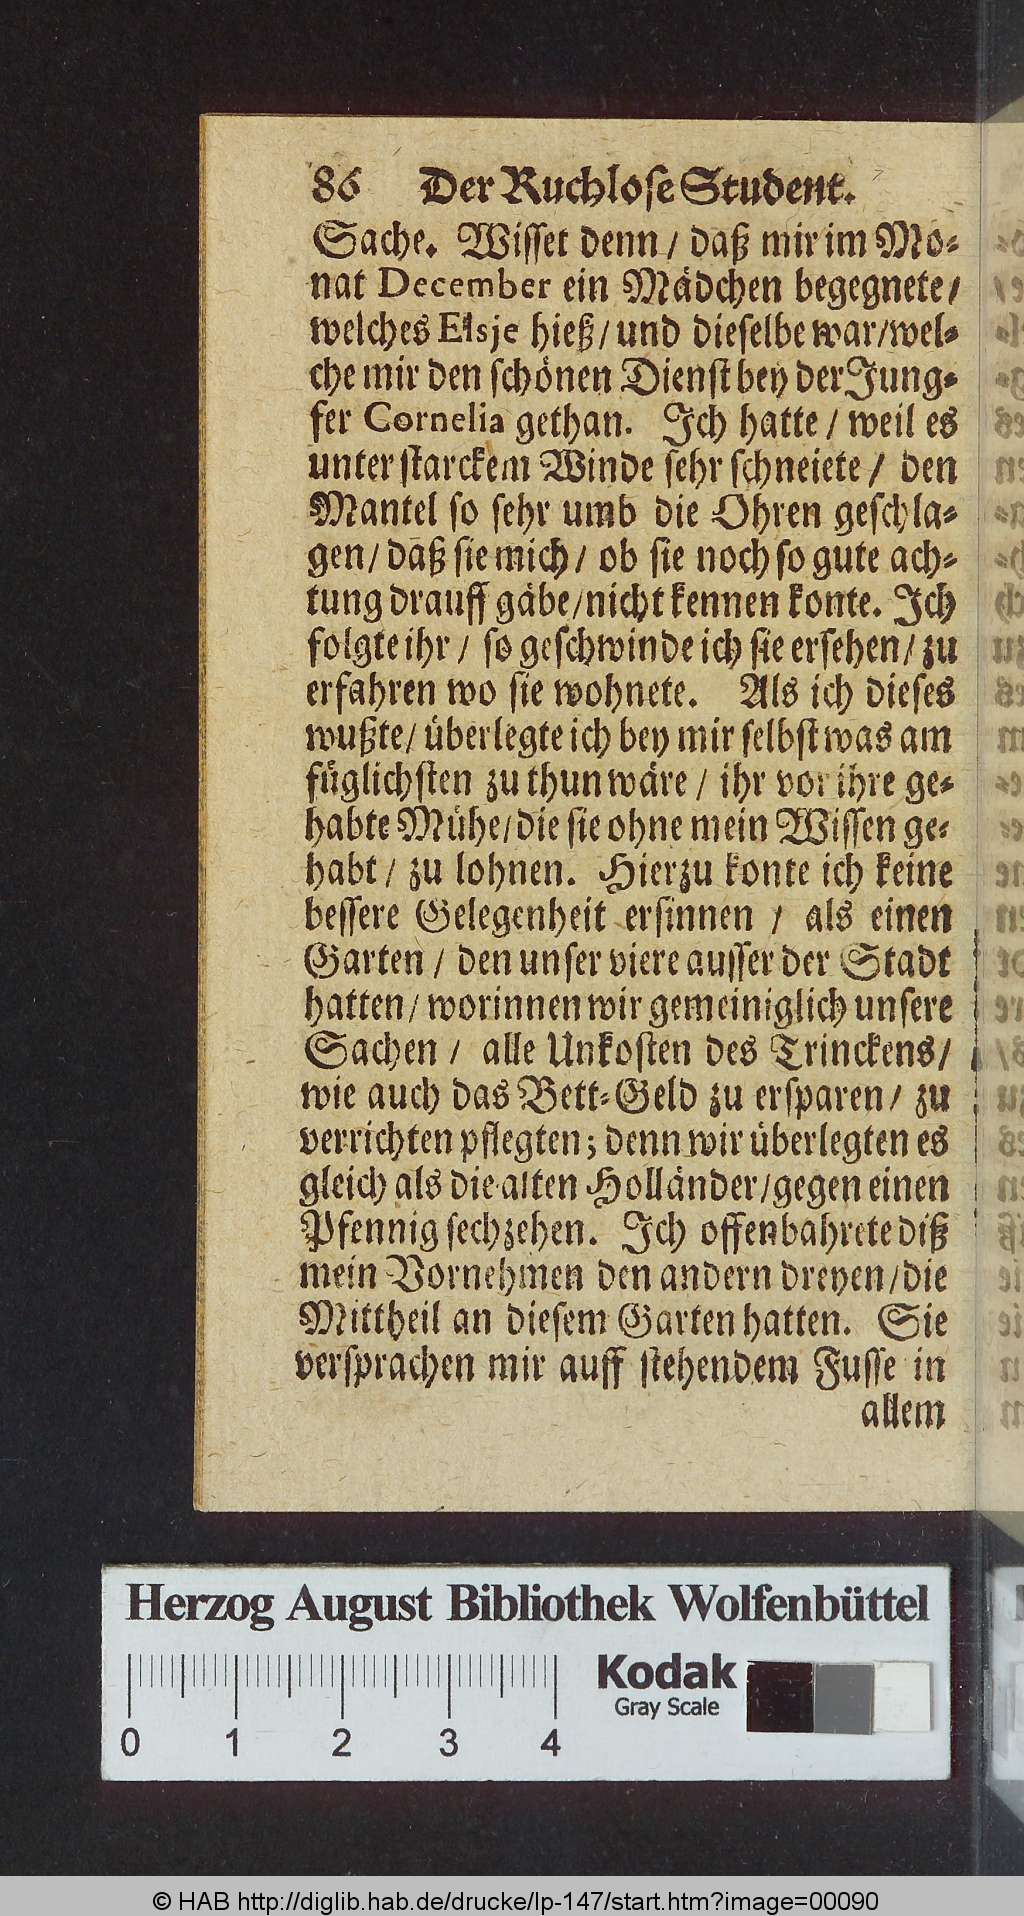 86 Der Ruchlose Student.
Sache. Wisset denn / daß mir im Mo-
nat December ein Mädchen begegnete /
welches Elsje hieß / und dieselbe war / wel-
che mir den schönen Dienst bey der Jung-
fer Cornelia gethan. Ich hatte / weil es
unter starckem Winde sehr schneiete / den
Mantel so sehr umb die Ohren geschla-
gen / daß sie mich / ob sie noch so gute ach-
tung drauff gäbe / nicht kennen konte. Ich
folgte ihr / so geschwinde ich sie ersehen / zu
erfahren wo sie wohnete. Als ich dieses
wußte / überlegte ich bey mir selbst was am
füglichsten zu thun wäre / ihr vor ihre ge-
habte Mühe / die sie ohne mein Wissen ge-
habt / zu lohnen. Hierzu konte ich keine
bessere Gelegenheit ersinnen / als einen
Garten / den unser viere ausser der Stadt
hatten / worinnen wir gemeiniglich unsere
Sachen / alle Unkosten des Trinckens /
wie auch das Bett-Geld zu ersparen / zu
verrichten pflegten; denn wir überlegten es
gleich als die alten Holländer / gegen einen
Pfennig sechzehen. Ich offenbahrete diß
mein Vornehmen den andern dreyen / die
Mittheil an diesem Garten hatten. Sie
versprachen mir auff stehendem Fusse in
allem
Herzog August Bibliothek Wolfenbüttel
Kodak
Gray Scale
0 1 2 3 4
© HAB http://diglib.hab.de/drucke/lp-147/start.htm?image=00090